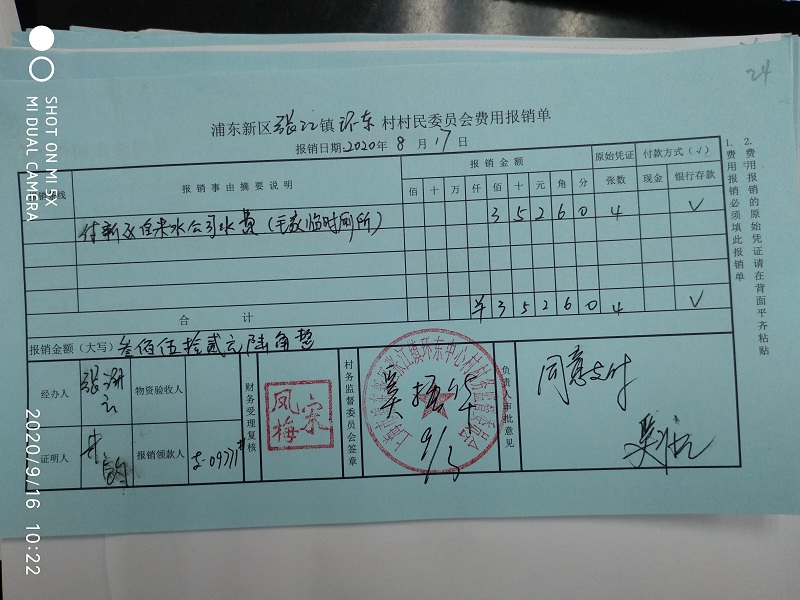 24
浦东新区张江镇环东村村民委员会费用报销单
报销日期:2020年8月17日
报销事由摘要说明
报销金额
原始凭证
付款方式(√)
佰 十 万 仟 佰 十 元 角 分
张数
现金
银行存款
付新区自来水公司水费(毛家临时厕所)
3 5 2 6 0 4 √
合计
羊 3 5 2 6 0 4 √
报销金额(大写) 叁佰伍拾贰元陆角整
经办人
物资验收人
财务受理复核
凤梅宋
村务监督委员会签章
9/3
负责人审批意见
同意支付
证明人
报销领款人
5-0971#
1.费用报销必须填此报销单
2.费用报销的原始凭证请在背面平齐粘贴
SHOT ON MI 5X
MI DUAL CAMERA
2020/9/16 10:22